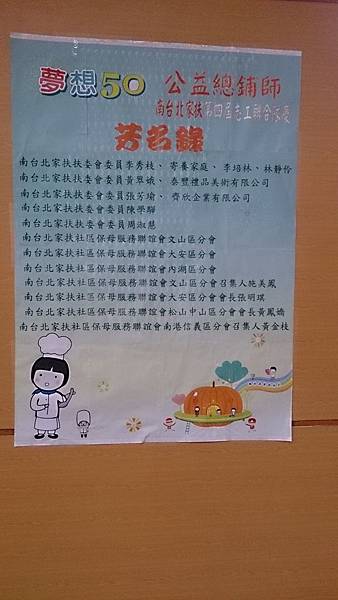 夢想50 公益總鋪師
南台北家扶第四屆志工聯合隊慶
芳名錄
南台北家扶扶委會委員李秀枝、寄養家庭、李培林、林靜伶
南台北家扶扶委會委員黃翠娥、泰豐禮品美術有限公司
南台北家扶扶委會委員張芳瑜、齊欣企業有限公司
南台北家扶扶委會委員陳學驊
南台北家扶扶委會委員周淑慧
南台北家扶社區保母服務聯誼會文山區分會
南台北家扶社區保母服務聯誼會大安區分會
南台北家扶社區保母服務聯誼會內湖區分會
南台北家扶社區保母服務聯誼會文山區分會召集人施美鳳
南台北家扶社區保母服務聯誼會大安區分會會長張明琪
南台北家扶社區保母服務聯誼會松山中山區分會會長黃鳳嬌
南台北家扶社區保母服務聯誼會南港信義區分會召集人黃金枝